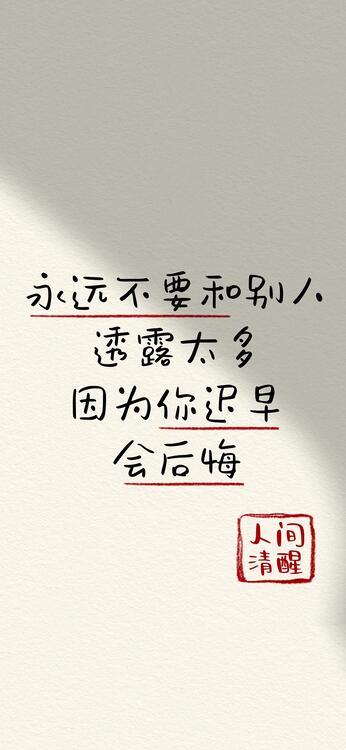 永远不要和别人
透露太多
因为你迟早
会后悔
人间
清醒